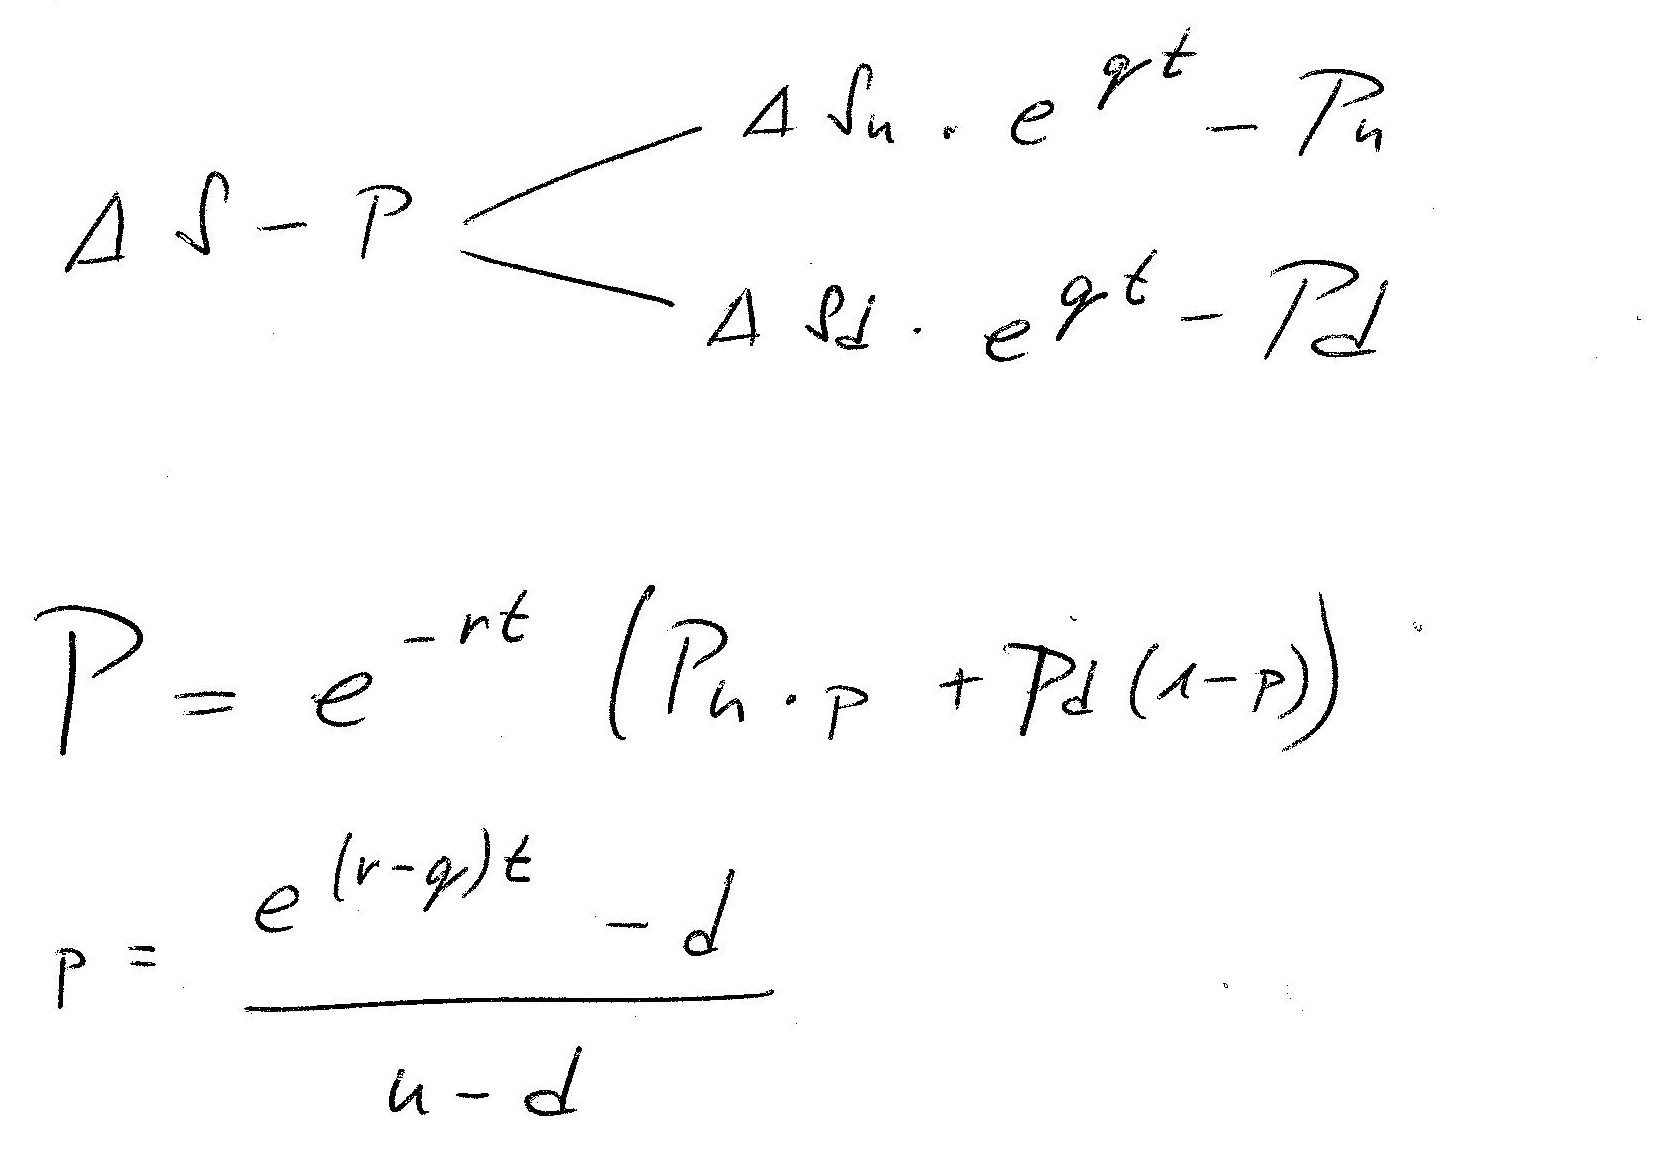 Δ Su · e^{qt} – Pu
Δ S – P
Δ Sd · e^{qt} – Pd
P = e^{-rt} (Pu · p + Pd (1-p))
p = \frac{e^{(r-q)t} - d}{u - d}